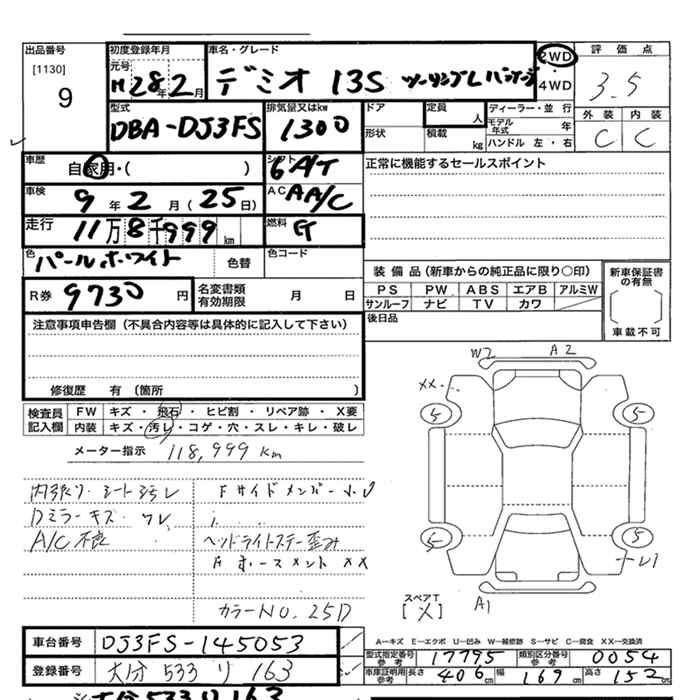 出品番号 初度登録年月 車名・グレード 評価点
[1130] 9
元号 H28年2月 デミオ 13S ツーリングLパッケージ
2WD 4WD 3.5
型式 DBA-DJ3FS 排気量又はkw 1300
ドア 形状 定員 人 積載 kg
ディーラー・並行 モデル年式 年 ハンドル 左・右
外装 内装 C C
車歴 自家用・( ) シフト 6A/T
正常に機能するセールスポイント
車検 9年2月(25日) AC AA/C
走行 11万8千999km 燃料 G
色 パールホワイト 色替 色コード
装備品(新車からの純正品に限り○印) 新車保証書の有無
PS PW ABS エアB アルミW
サンルーフ ナビ TV カワ 車載不可
R券 9730円 名変書類有効期限 月 日
後日品
注意事項申告欄(不具合内容等は具体的に記入して下さい)
修復歴 有(箇所 )
W2 A2
XX
検査員記入欄 FW キズ・飛石・ヒビ割・リペア跡・X要
内装 キズ・汚レ・コゲ・穴・スレ・キレ・破レ
5 5
メーター指示 118,999km
内張り・シート汚レ Fサイドメンバー
Dミラーキズ ワレ
A/C不良 ヘッドライトステー歪み
5 5
XX
カラーNO.25D
スペアT [X] A1
車台番号 DJ3FS-145053
A―キズ E―エクボ U―凹み W―補修跡 S―サビ C―腐食 XX―交換済
型式指定番号 参考 17795 類別区分番号 参考 0054
登録番号 大分 533 り 163
車庫証明用 参考 長さ 406cm 幅 169cm 高さ 152cm
大分533り163